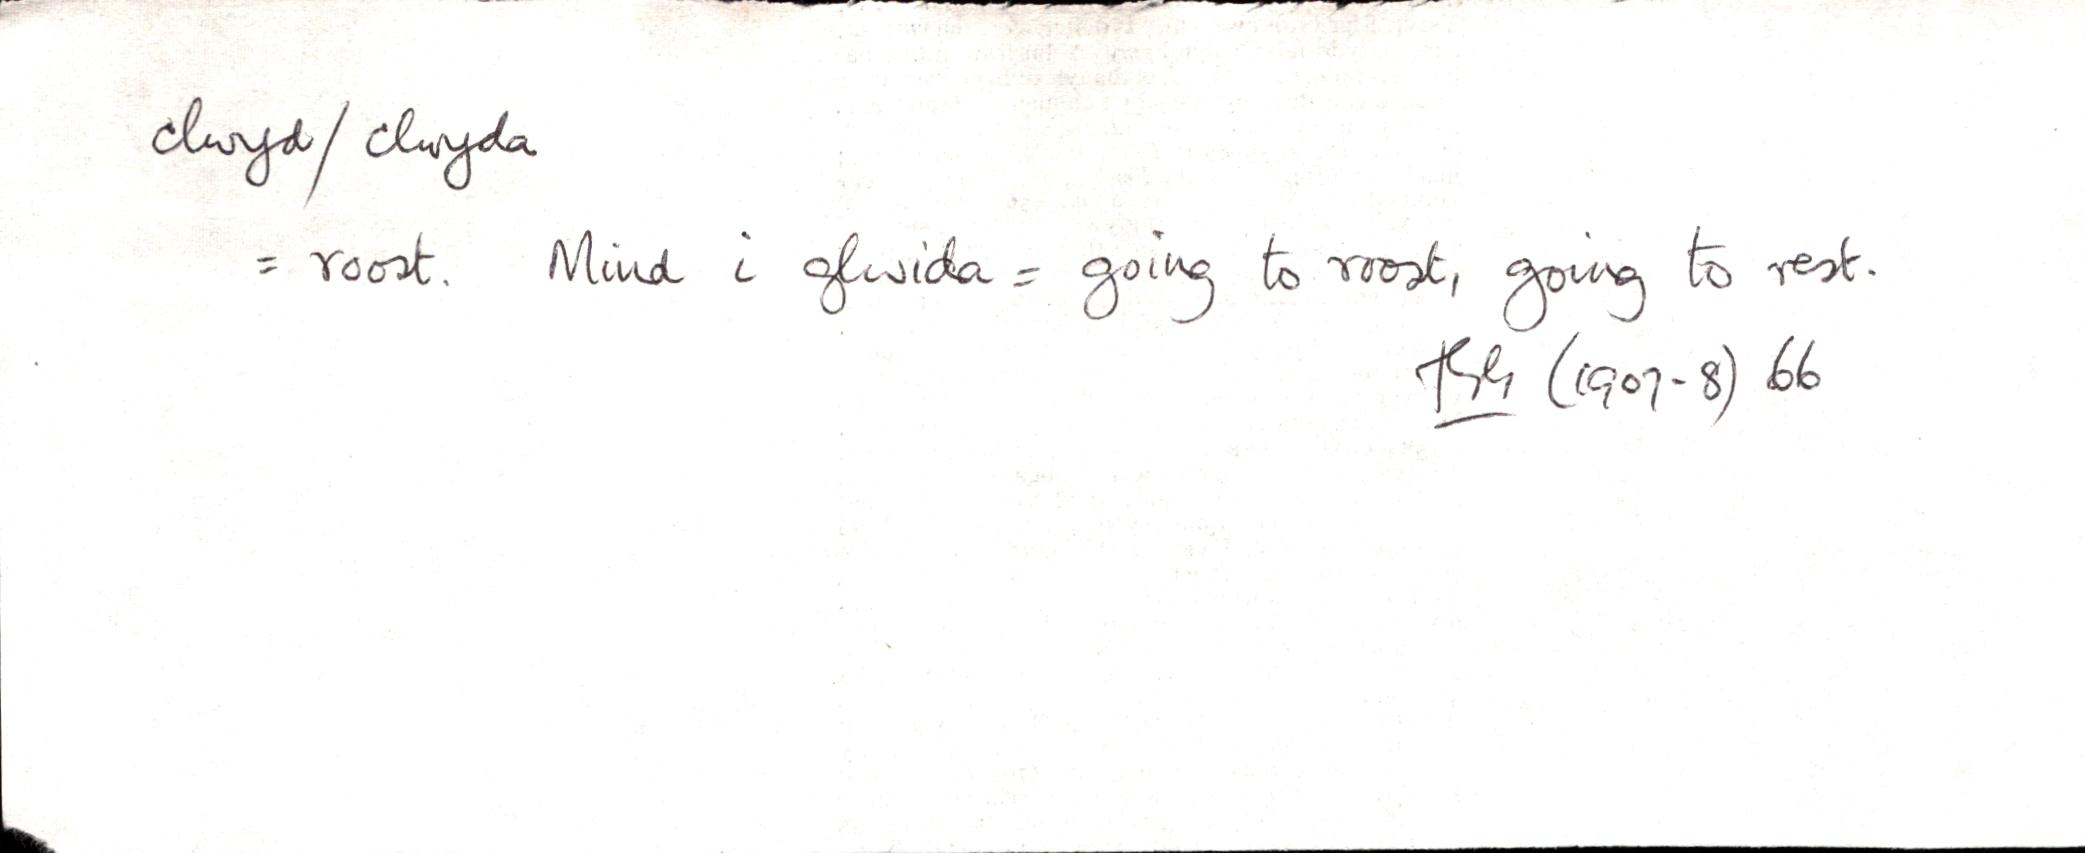 clwyd / clwyda
= roost. Mind i glwida = going to roost, going to rest.
(1907-8) 66